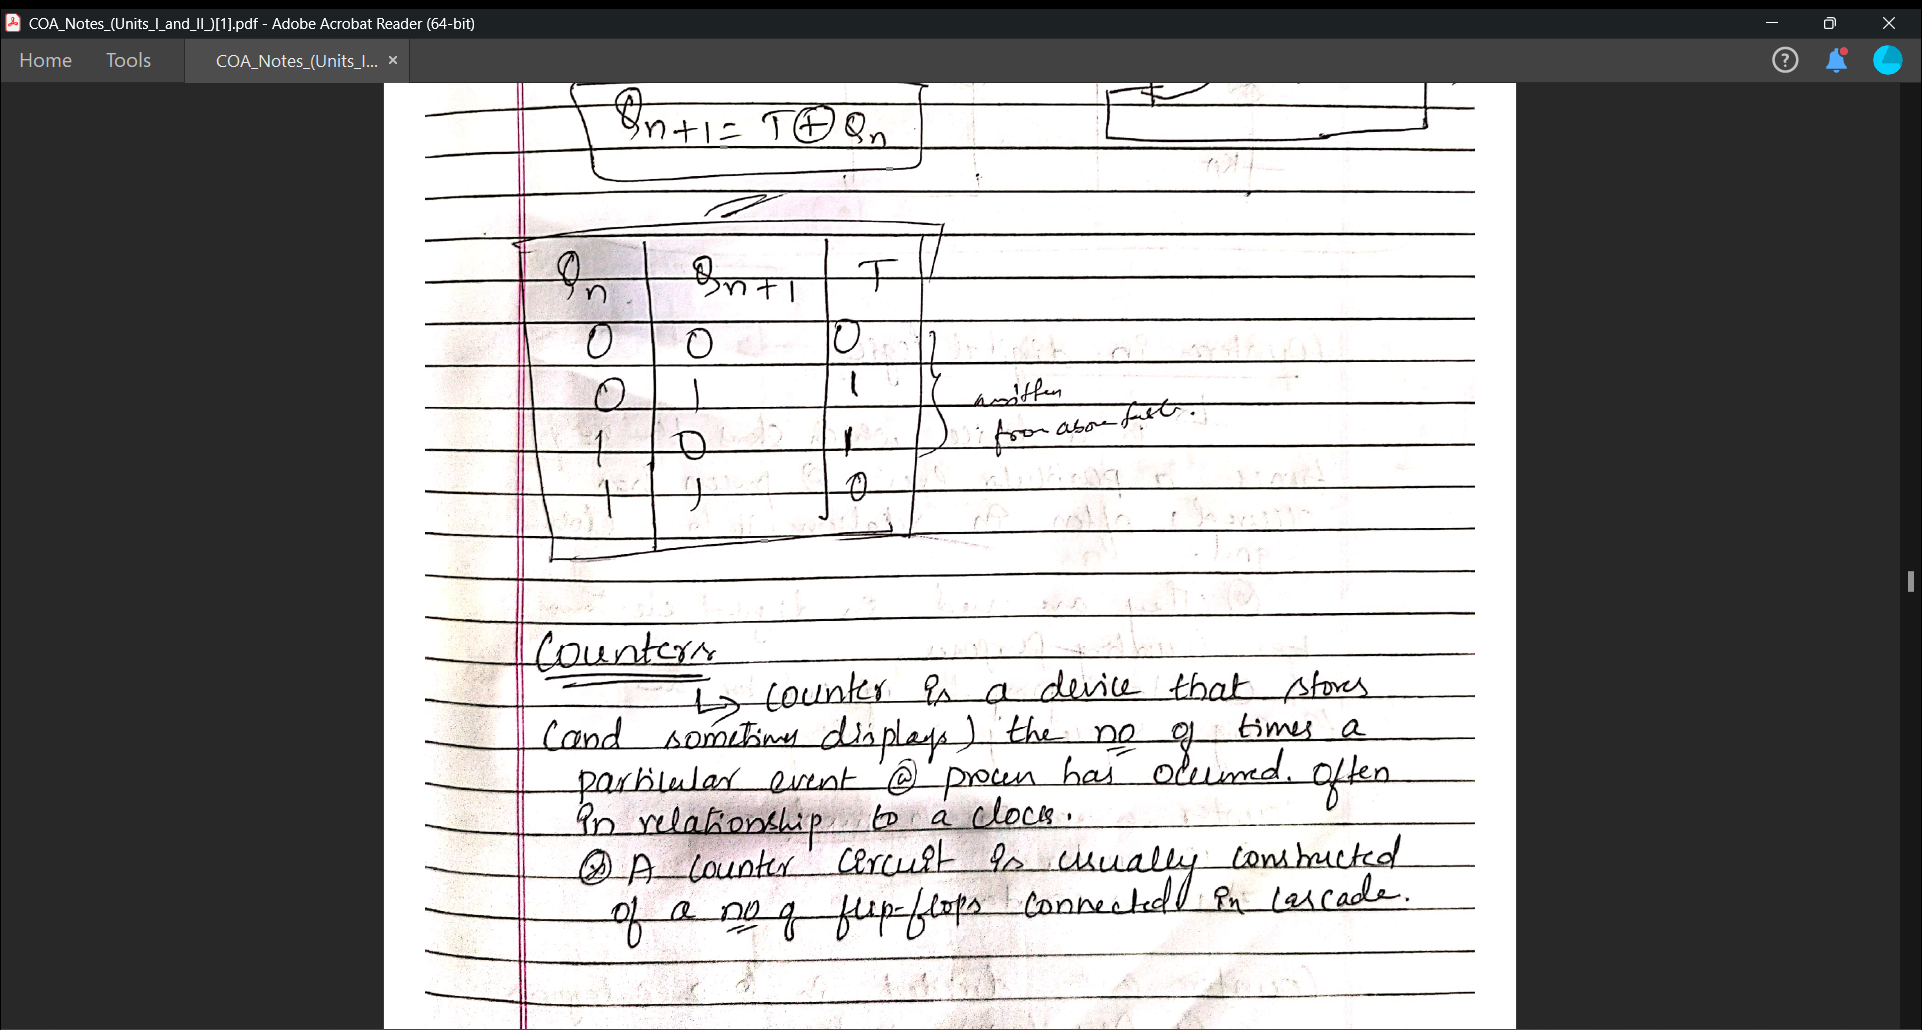 COA_Notes_(Units_I_and_II_)[1].pdf - Adobe Acrobat Reader (64-bit)
Home Tools COA_Notes_(Units_I... ×
Qn+1 = T⊕Qn
Qn Qn+1 T
0 0 0
0 1 1
1 0 1
1 1 0
from above
Counters
↳ counter is a device that stores
(and sometimes displays) the no of times a
particular event @ process has occurred. Often
in relationship to a clock.
A counter circuit is usually constructed
of a no of flip-flops connected in cascade.